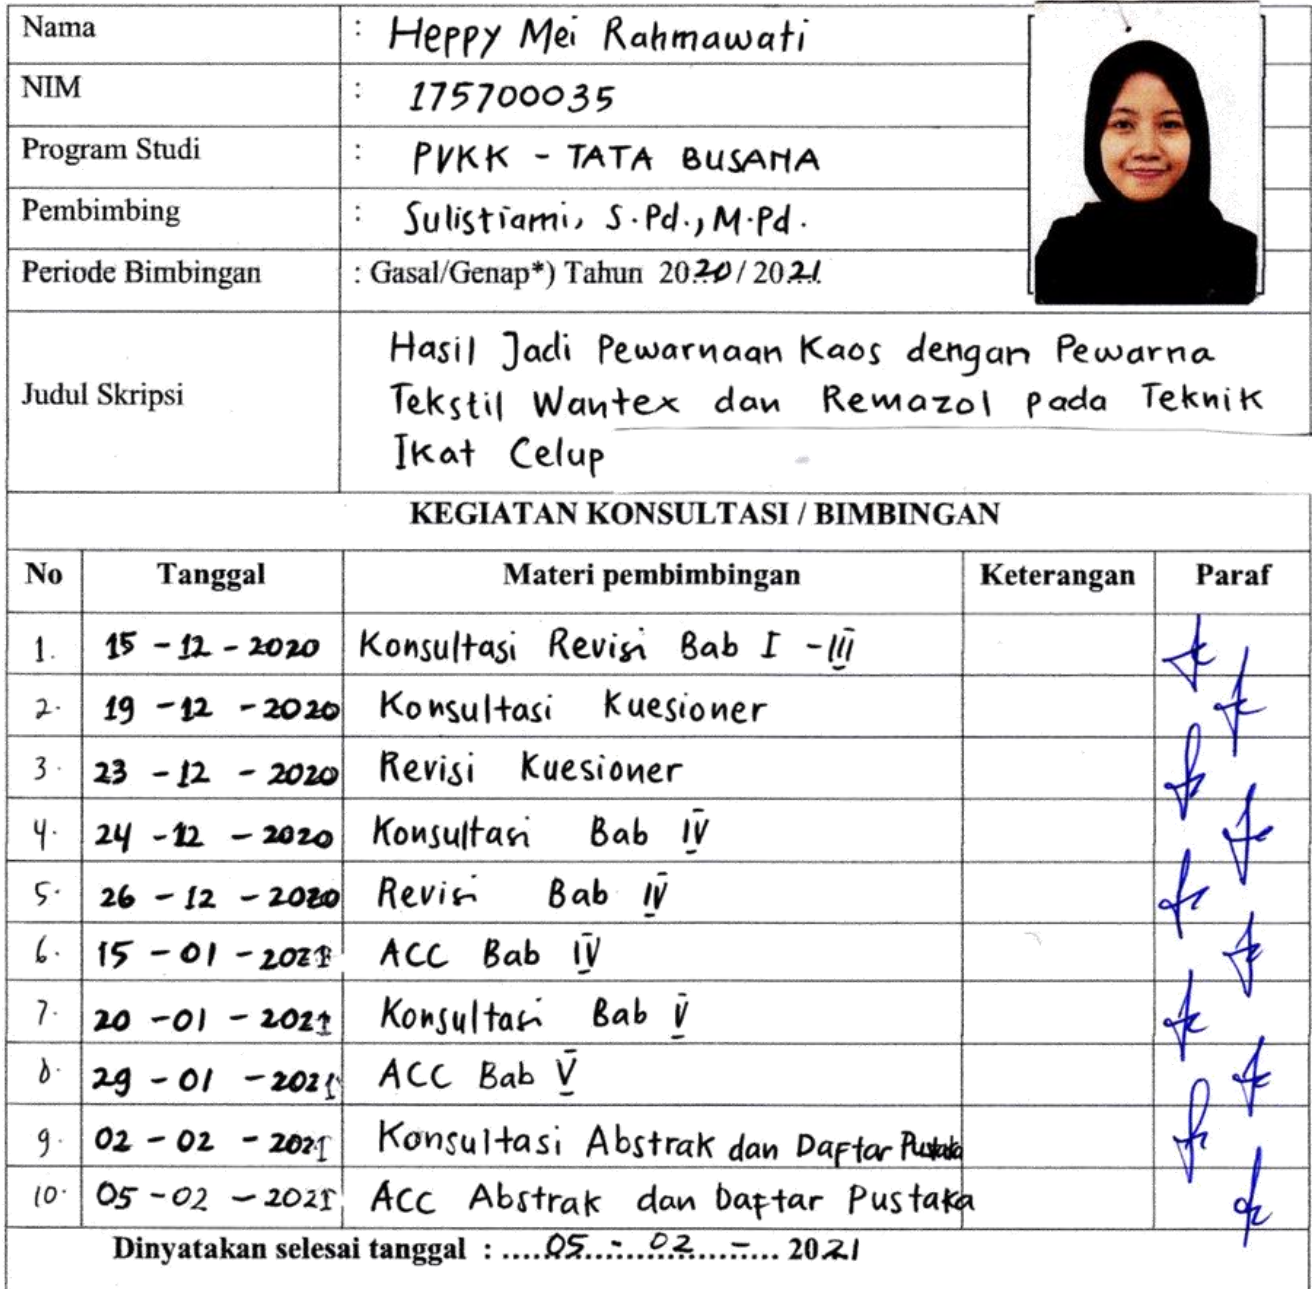 Nama : Heppy Mei Rahmawati
NIM : 175700035
Program Studi : PVKK - TATA BUSANA
Pembimbing : Sulistiami, S.Pd., M.Pd.
Periode Bimbingan : Gasal/Genap*) Tahun 2020/2021
Judul Skripsi
Hasil Jadi Pewarnaan Kaos dengan Pewarna
Tekstil Wantex dan Remazol pada Teknik
Ikat Celup
KEGIATAN KONSULTASI / BIMBINGAN
No Tanggal Materi pembimbingan Keterangan Paraf
1. 15 - 12 - 2020 Konsultasi Revisi Bab I - III
2. 19 - 12 - 2020 Konsultasi Kuesioner
3. 23 - 12 - 2020 Revisi Kuesioner
4. 24 - 12 - 2020 Konsultasi Bab IV
5. 26 - 12 - 2020 Revisi Bab IV
6. 15 - 01 - 2021 ACC Bab IV
7. 20 - 01 - 2021 Konsultasi Bab V
8. 29 - 01 - 2021 ACC Bab V
9. 02 - 02 - 2021 Konsultasi Abstrak dan Daftar Pustaka
10. 05 - 02 - 2021 ACC Abstrak dan Daftar Pustaka
Dinyatakan selesai tanggal : ....05....-....02....-.... 2021